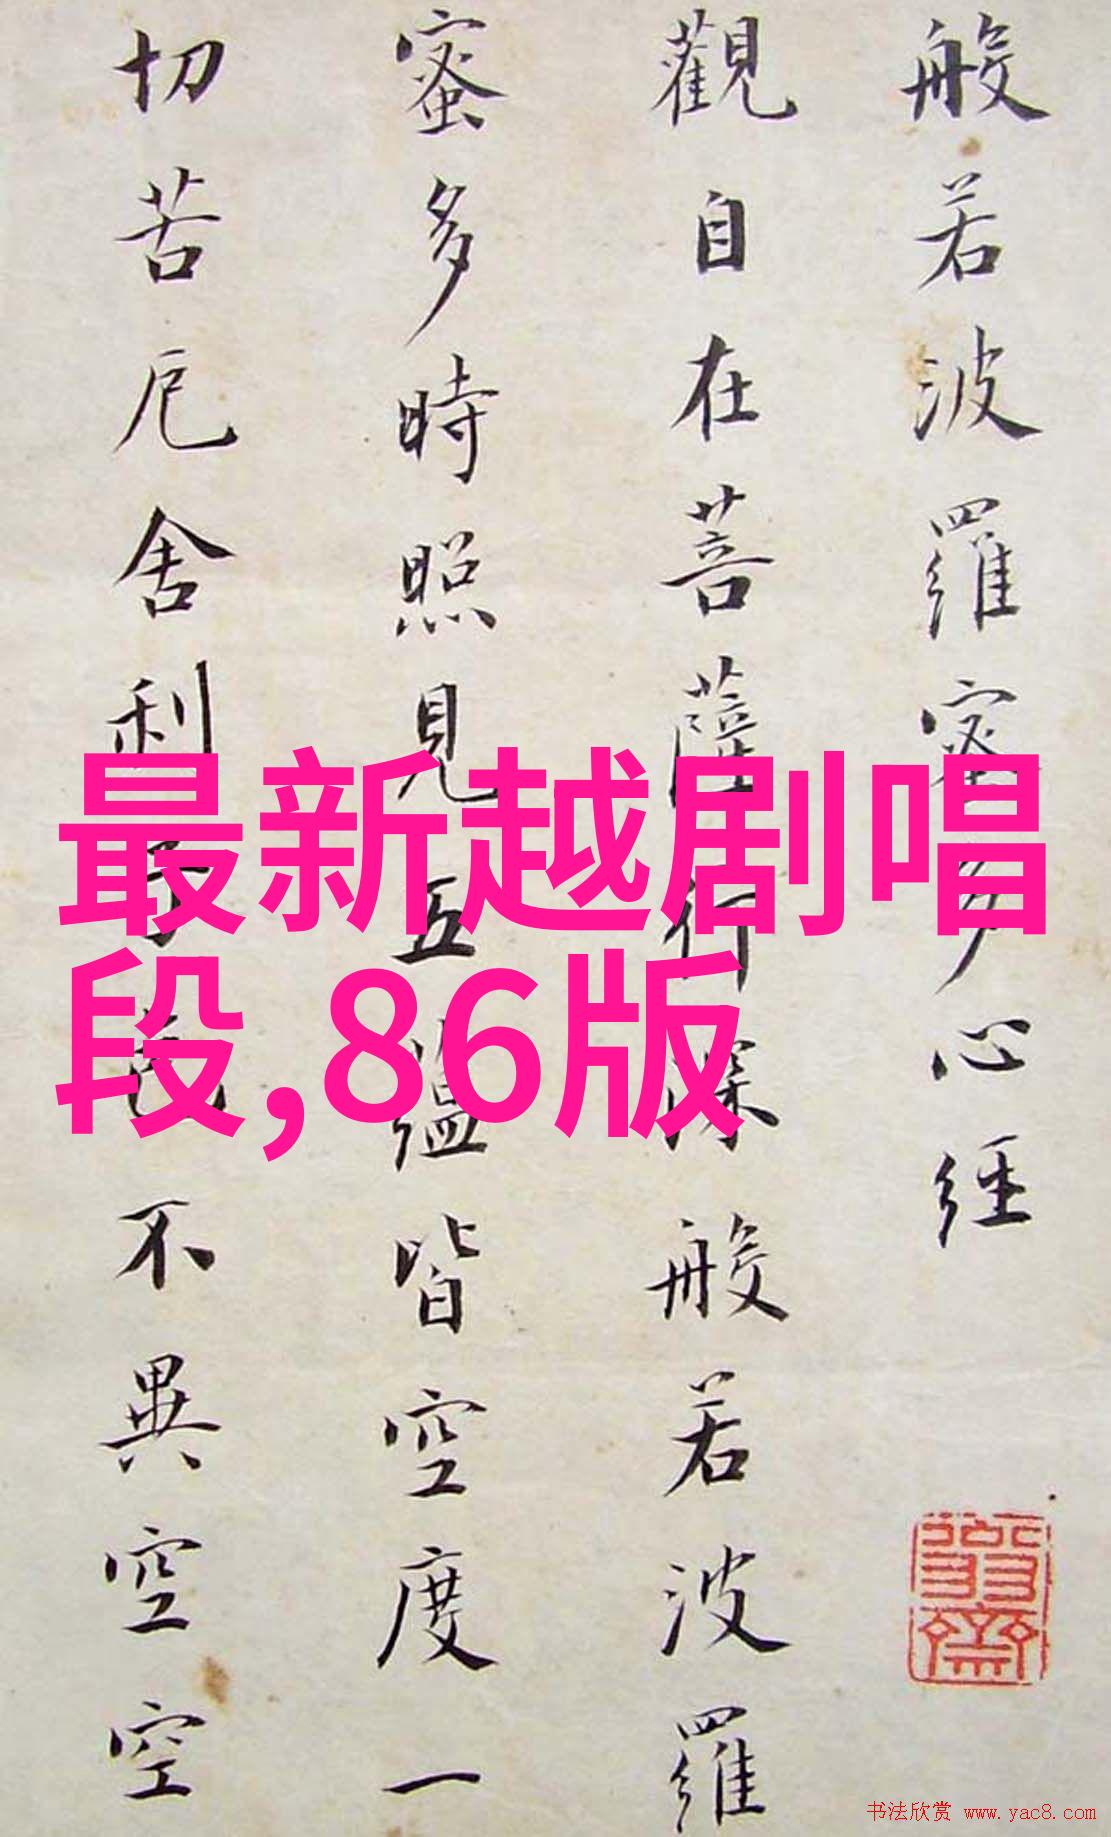 般若波羅蜜多心經
觀自在菩薩行深般若波羅
蜜多時照見五蘊皆空度一
切苦厄舍利子色不異空空
最新越剧唱
段,86版
书法欣赏 www.yac8.com